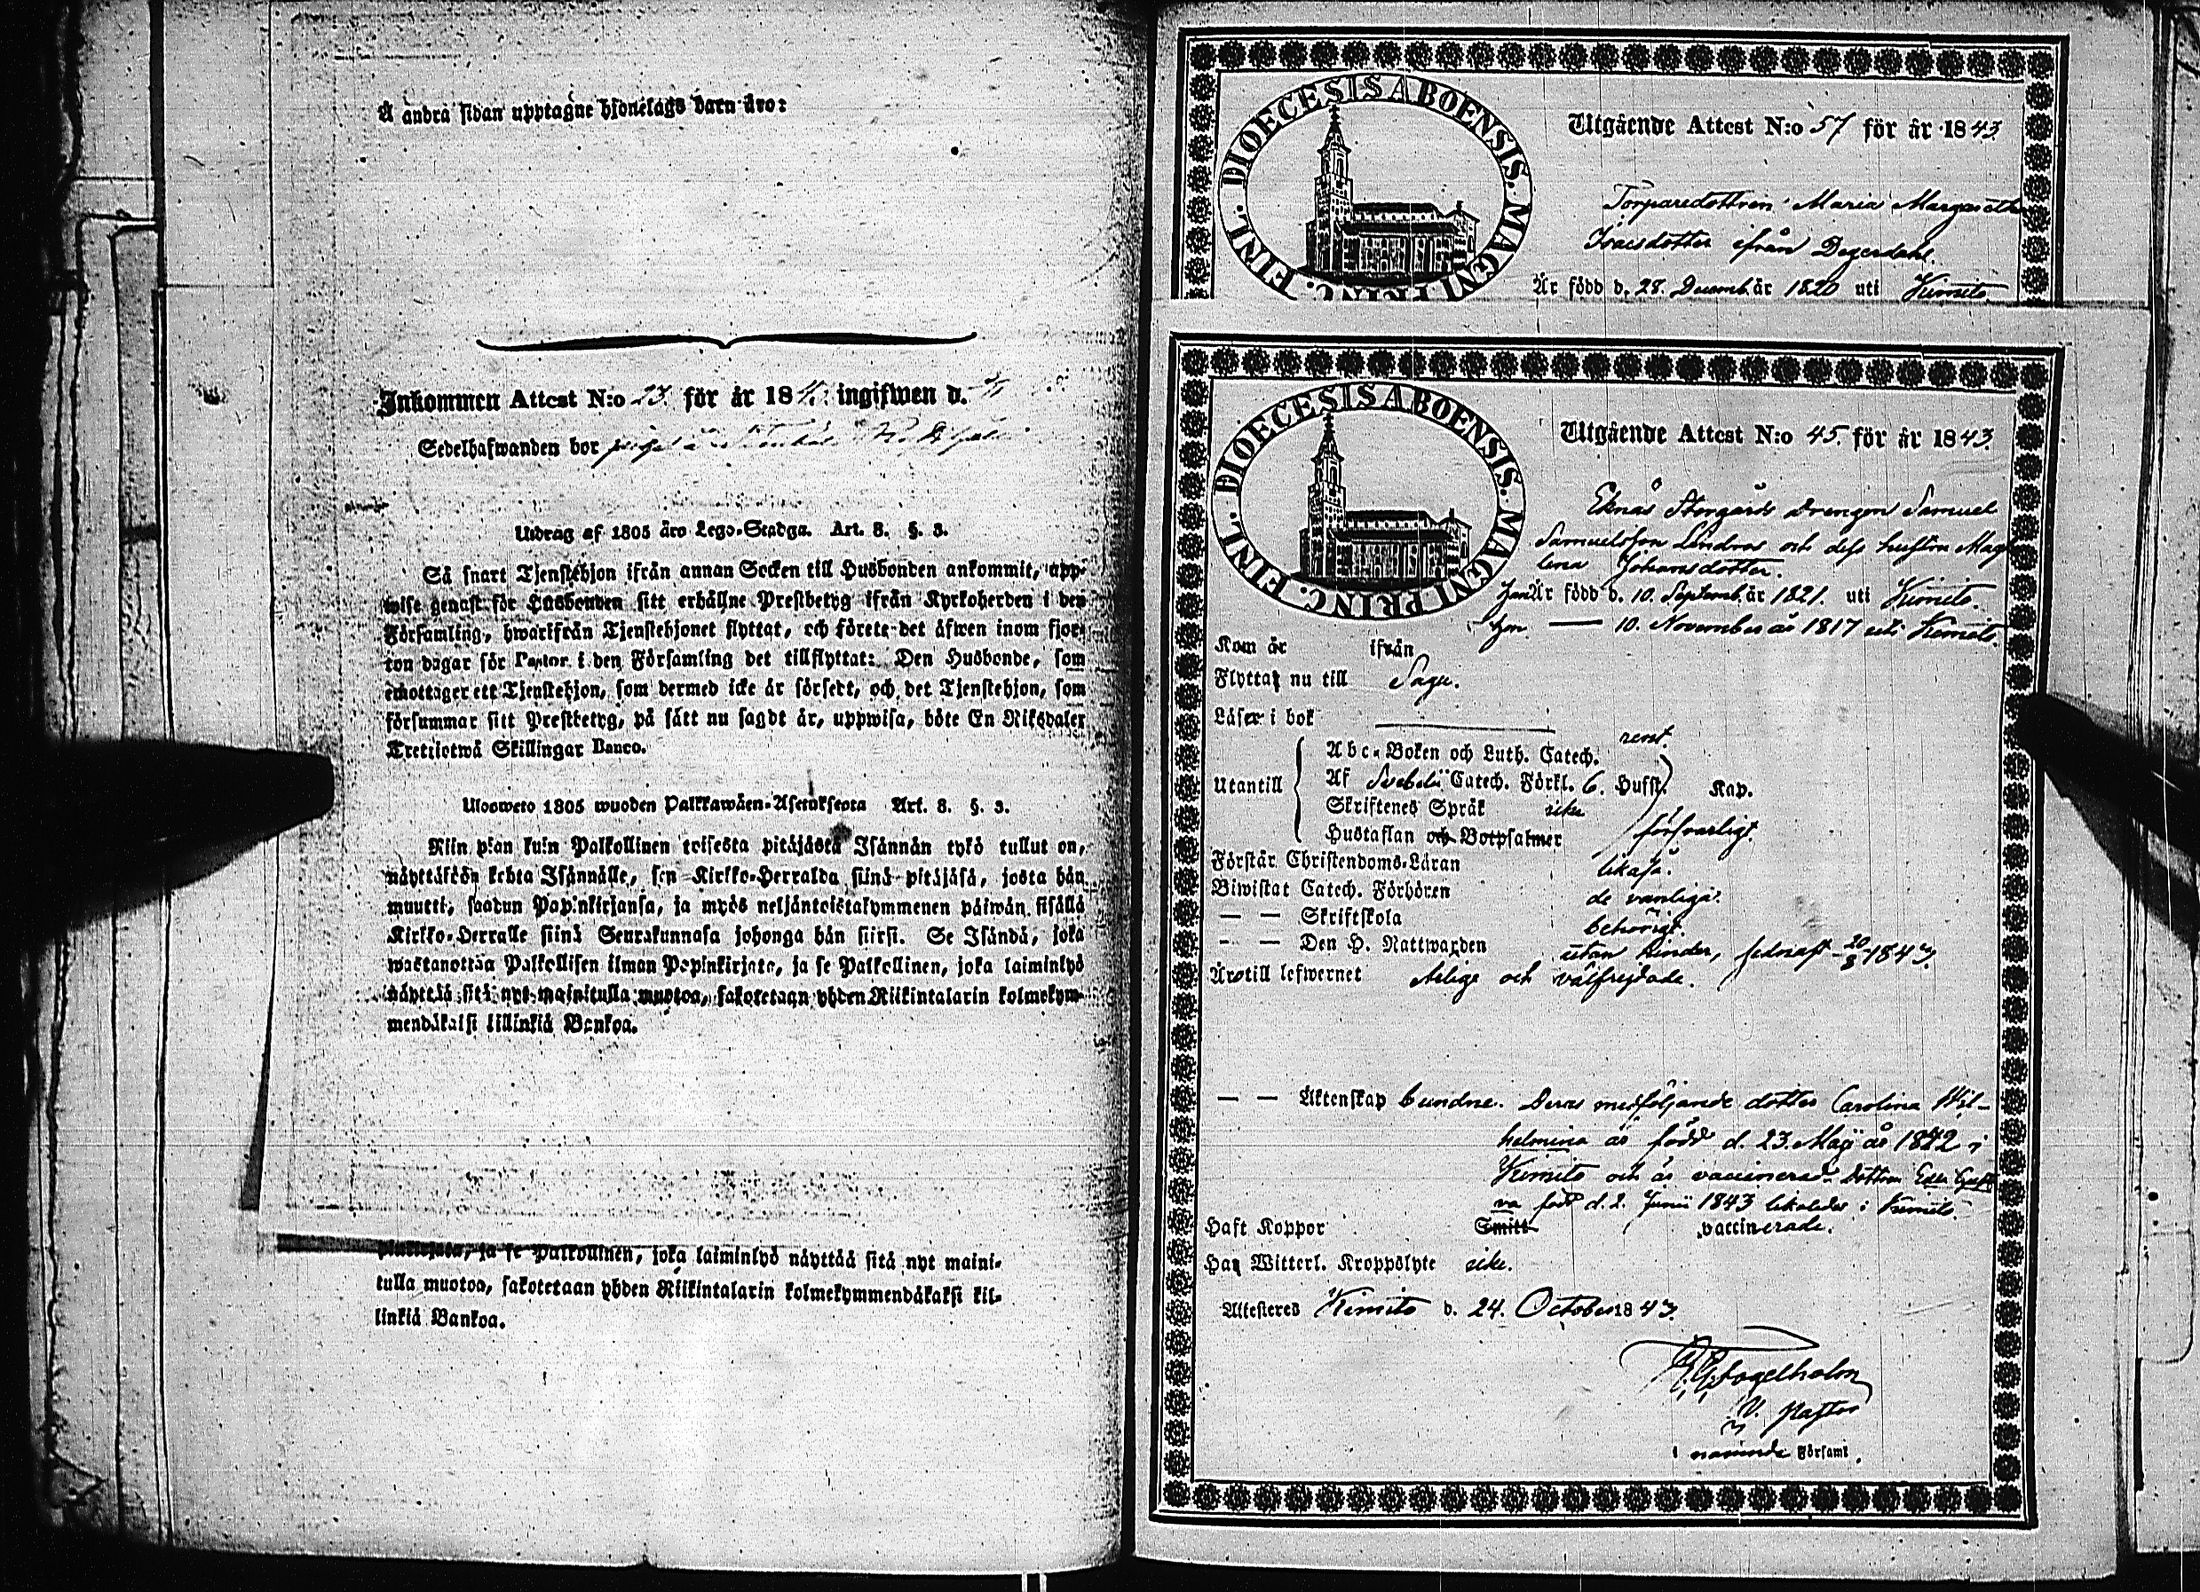 Å andra sidan upptagne hjonelags barn äro:
Inkommen Attest N:o 23. för år 184 ingifwen d.
Sedelhafwanden bor
Utdrag af 1805 åro Lego-Stadga. Art. 8. §. 3.
Så snart Tjenstehjon ifrån annan Socken till Husbonden ankommit, upp-
wise genast för Husbonden sitt erhållne Prestbetyg ifrån Kyrkoherden i den
Församling, hwarifrån Tjenstehjonet flyttat, och förete det äfwen inom fjor-
ton dagar för Pastor i den Församling det tillflyttat: Den Husbonde, som
emottager ett Tjenstehjon, som dermed icke är försedt, och det Tjenstehjon, som
försummar sitt Prestbetyg, på sätt nu sagdt är, uppwisa, böte En Riksdaler
Trettiotwå Skillingar Banco.
Ulosweto 1805 wuoden Palkkawäen-Asetuksesta Art. 8. §. 3.
Niin pian kuin Palkollinen toisesta pitäjästä Isännän tykö tullut on,
näyttäköön kohta Isännälle, sen Kirkko-Herralda siinä pitäjäsä, josta hän
muutti, saadun Papinkirjansa, ja myös neljäntoistakymmenen päiwän sisällä
Kirkko-Herralle siinä Seurakunnasa johonga hän siirsi. Se Isändä, joka
wastanottaa Palkollisen ilman Papinkirjata, ja se Palkollinen, joka laiminlyö
näyttää sitä nyt mainitulla muotoa, sakotetaan yhden Riikintalarin kolmekym-
mendäkaksi killinkiä Bankoa.
pinkirjata, ja se Palkollinen, joka laiminlyö näyttää sitä nyt maini-
tulla muotoa, sakotetaan yhden Riikintalarin kolmekymmendäkaksi kil-
linkiä Bankoa.
DIOECESIS ABOENSIS. MAGNI PRINC. FINL.
Utgående Attest N:o 57 för år 1843
Torparedottren Maria Margareth
Isacsdotter ifrån Degerdahl.
Är född d. 28. Decemb. år 1820 uti Kimito
DIOECESIS ABOENSIS. MAGNI PRINC. FINL.
Utgående Attest N:o 45. för år 1843.
Eknäs Storgårds Drengen Samuel
Samuelsson Lindros och dess hustru Mag
lena Johansdotter.
Han Är född d. 10. Septemb. år 1821. uti Kimito.
Hon — 10. November år 1817 uti Kimito.
Kom år ifrån
Flyttat nu till Sagu.
Läser i bok rent.
Abc-Boken och Luth. Catech.
Utantill Af Svebelii Catech. Förkl. 6. Hufst. Kap.
Skriftenes Språk icke
Hustaflan och Botpsalmer försvarligt.
Förstår Christendoms-Läran likaså.
Biwistat Catech. Förhören de vanliga.
— — Skriftskola behörigt.
— — Den H. Nattwarden utan hinder, sednast 20/8 1843.
Äro till lefwernet ärlige och välfrejdade.
— — Äktenskap bundne. Deras medföljande dotter Carolina Wil-
helmina är född d. 23. Maij år 1842 i
Kimito och är vaccinerad. Dottren Eva Gust
va född d. 2. Junii 1843 likaledes i Kimito.
Haft Koppor Smitt vaccinerade.
Har Witterl. Kroppslyte icke.
Attesteres Kimito d. 24. October 1843.
Fogelholm
V. Pastor
i namnde Församl.